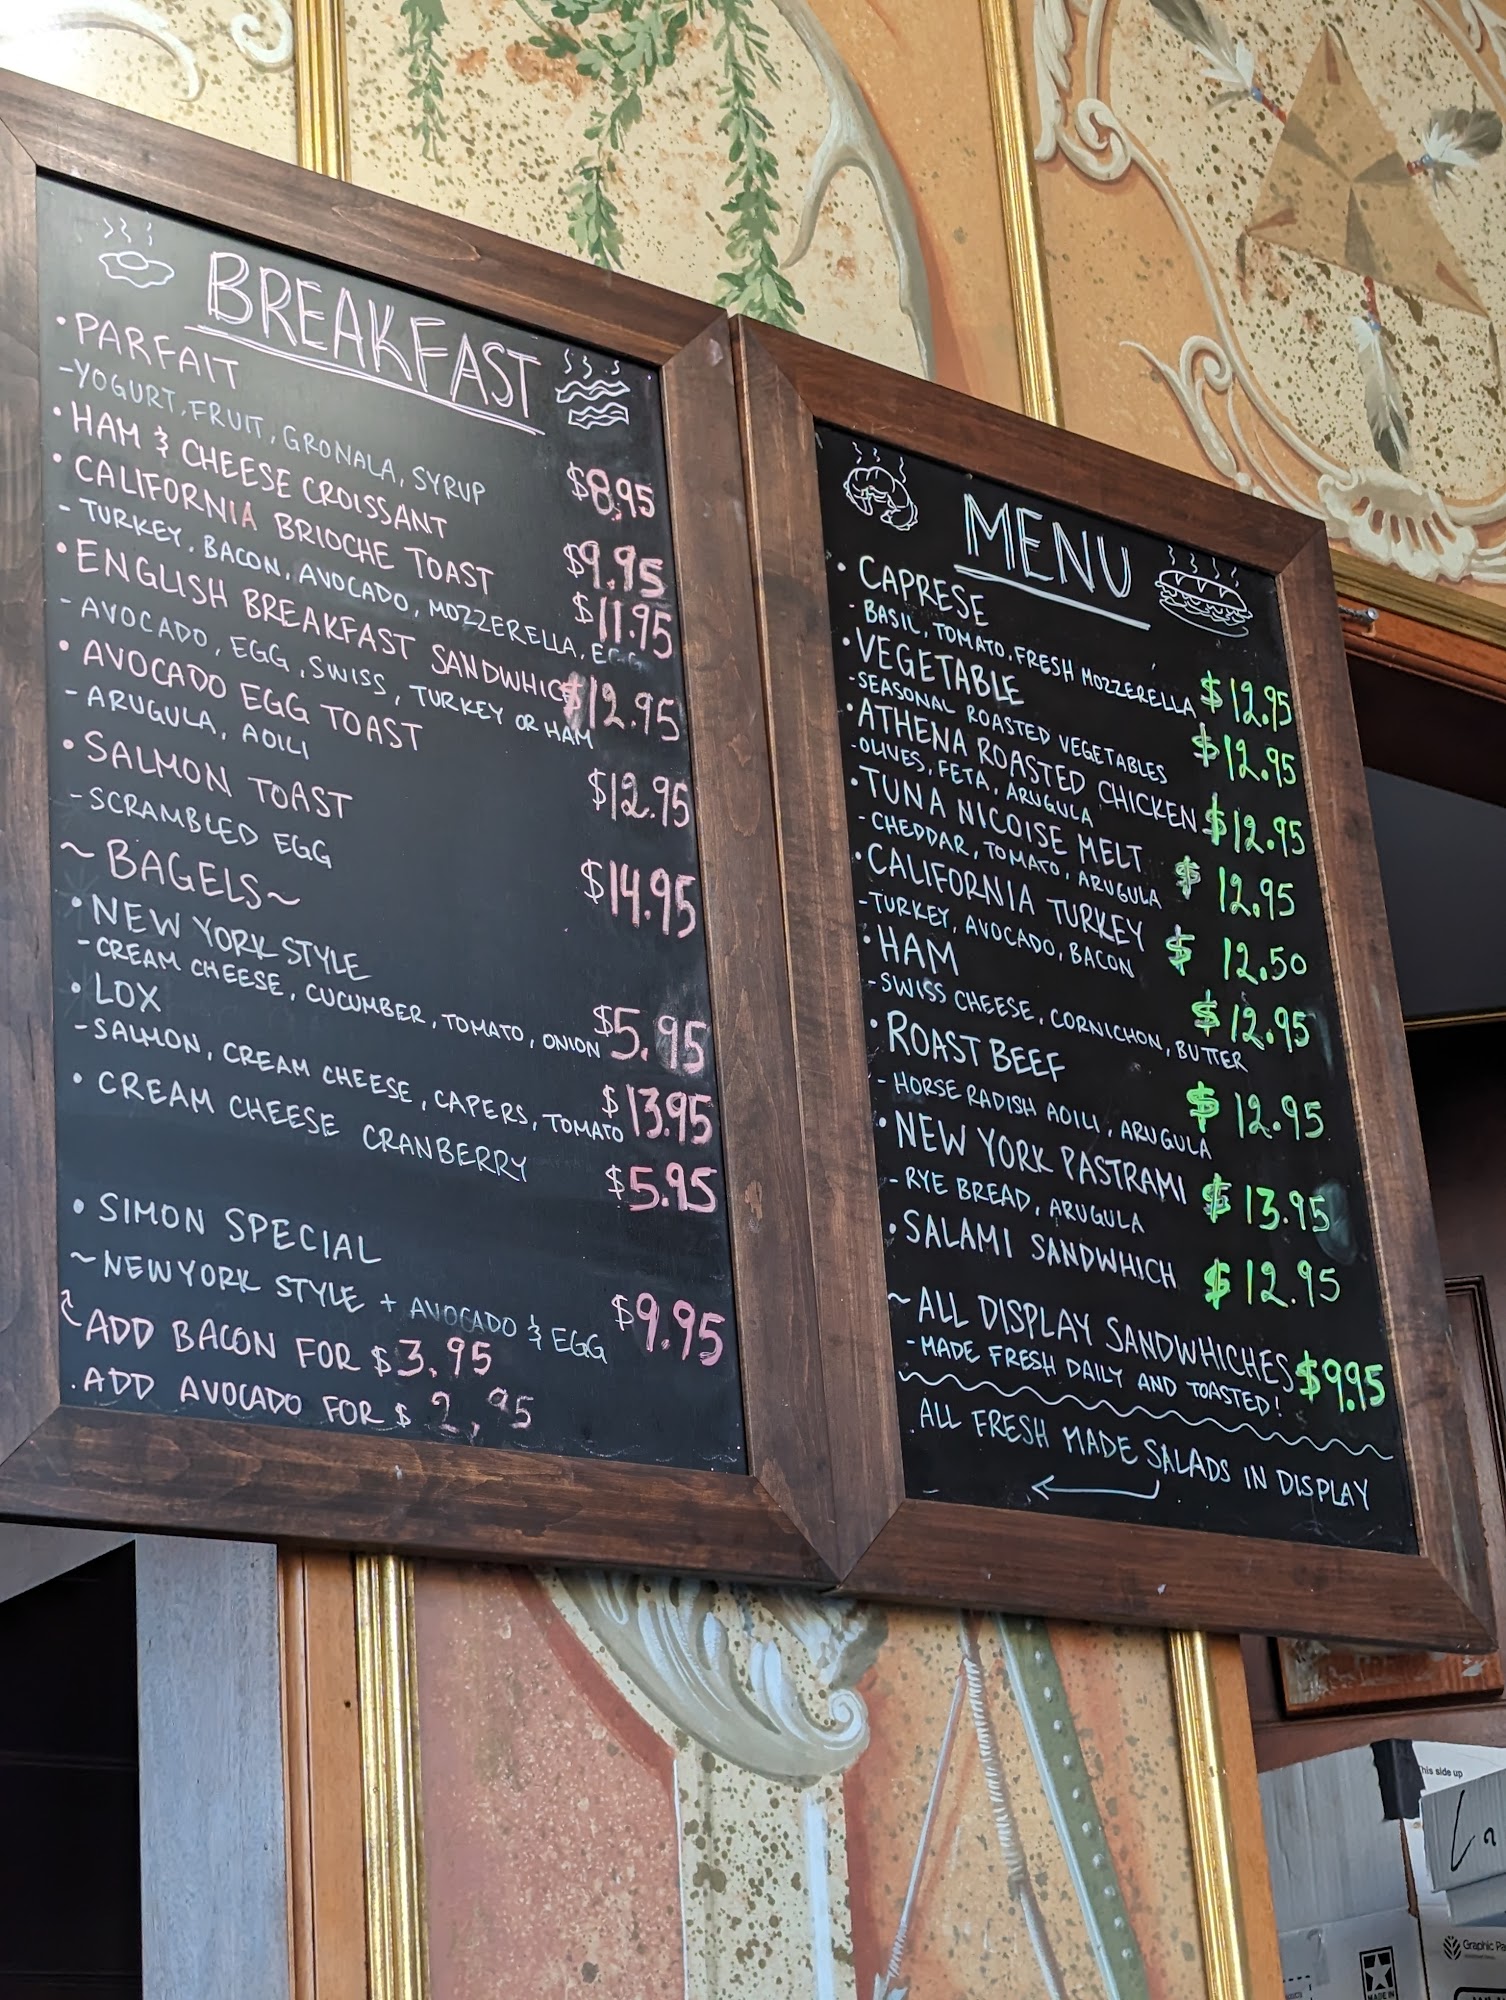 BREAKFAST
• PARFAIT
-YOGURT, FRUIT, GRONALA, SYRUP $8.95
• HAM & CHEESE CROISSANT $9.95
• CALIFORNIA BRIOCHE TOAST $11.95
- TURKEY, BACON, AVOCADO, MOZZERELLA, EGG
• ENGLISH BREAKFAST SANDWHIC $12.95
- AVOCADO, EGG, SWISS, TURKEY OR HAM
• AVOCADO EGG TOAST $12.95
- ARUGULA, AOILI
• SALMON TOAST $14.95
- SCRAMBLED EGG
~ BAGELS ~
• NEW YORK STYLE
- CREAM CHEESE, CUCUMBER, TOMATO, ONION $5.95
• LOX
- SALMON, CREAM CHEESE, CAPERS, TOMATO $13.95
• CREAM CHEESE CRANBERRY $5.95
• SIMON SPECIAL
~ NEW YORK STYLE + AVOCADO & EGG $9.95
ADD BACON FOR $3.95
. ADD AVOCADO FOR $2,95
MENU
• CAPRESE
- BASIL, TOMATO, FRESH MOZZERELLA $12.95
• VEGETABLE
- SEASONAL ROASTED VEGETABLES $12.95
• ATHENA ROASTED CHICKEN $12.95
- OLIVES, FETA, ARUGULA
• TUNA NICOISE MELT $12.95
- CHEDDAR, TOMATO, ARUGULA
• CALIFORNIA TURKEY $12.50
- TURKEY, AVOCADO, BACON
• HAM $12.95
- SWISS CHEESE, CORNICHON, BUTTER
• ROAST BEEF $12.95
- HORSE RADISH AOILI, ARUGULA
• NEW YORK PASTRAMI $13.95
- RYE BREAD, ARUGULA
• SALAMI SANDWHICH $12.95
~ ALL DISPLAY SANDWHICHES $9.95
- MADE FRESH DAILY AND TOASTED!
ALL FRESH MADE SALADS IN DISPLAY
←
his side up
La
Graphic Pa
MADE IN